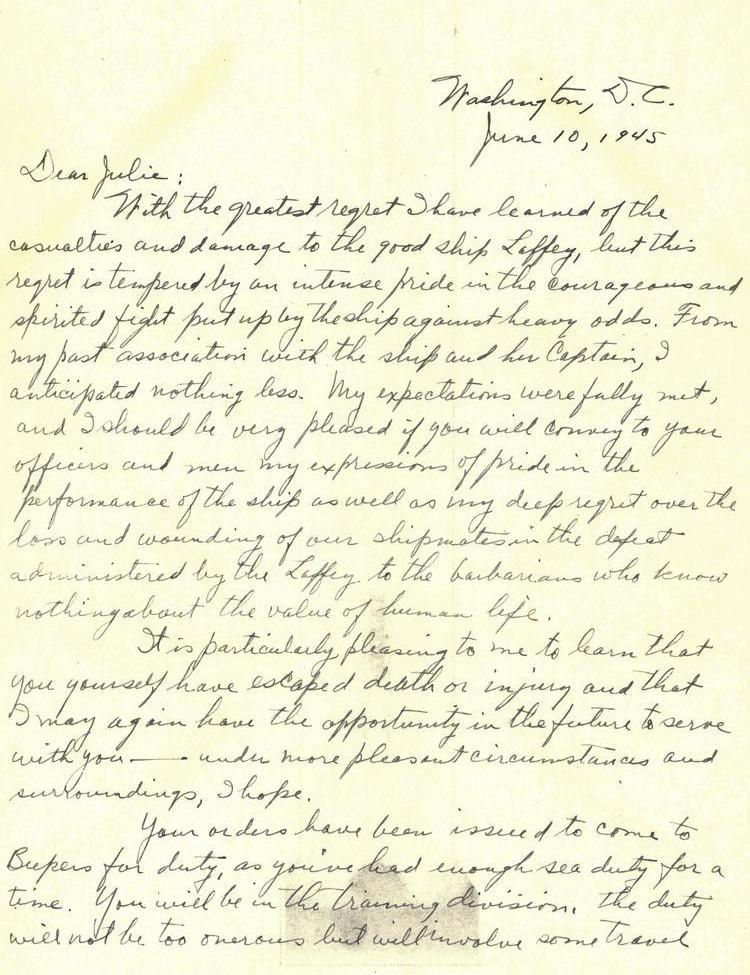 Washington, D.C.
June 10, 1945
Dear Julie:
With the greatest regret I have learned of the
casualties and damage to the good ship Laffey, but this
regret is tempered by an intense pride in the courageous and
spirited fight put up by the ship against heavy odds. From
my past association with the ship and her Captain, I
anticipated nothing less. My expectations were fully met,
and I should be very pleased if you will convey to your
officers and men my expressions of pride in the
performance of the ship as well as my deep regret over the
loss and wounding of our shipmates in the defeat
administered by the Laffey to the barbarians who know
nothing about the value of human life.
It is particularly pleasing to me to learn that
you yourself have escaped death or injury and that
I may again have the opportunity in the future to serve
with you — under more pleasant circumstances and
surroundings, I hope.
Your orders have been issued to come to
Bupers for duty, as you've had enough sea duty for a
time. You will be in the training division. the duty
will not be too onerous but will involve some travel